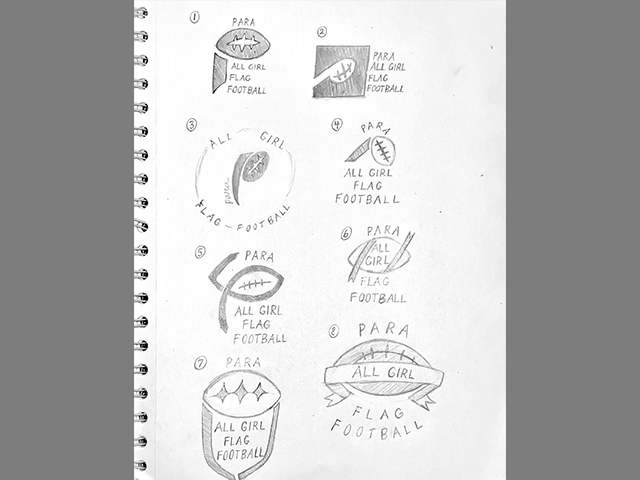 1
PARA
ALL GIRL
FLAG
FOOTBALL
2
PARA
ALL GIRL
FLAG
FOOTBALL
3
ALL GIRL
para
FLAG-FOOTBALL
4
PARA
ALL GIRL
FLAG
FOOTBALL
5
PARA
ALL GIRL
FLAG
FOOTBALL
6
PARA
ALL
GIRL
FLAG
FOOTBALL
7
PARA
ALL GIRL
FLAG
FOOTBALL
8
PARA
ALL GIRL
FLAG
FOOTBALL